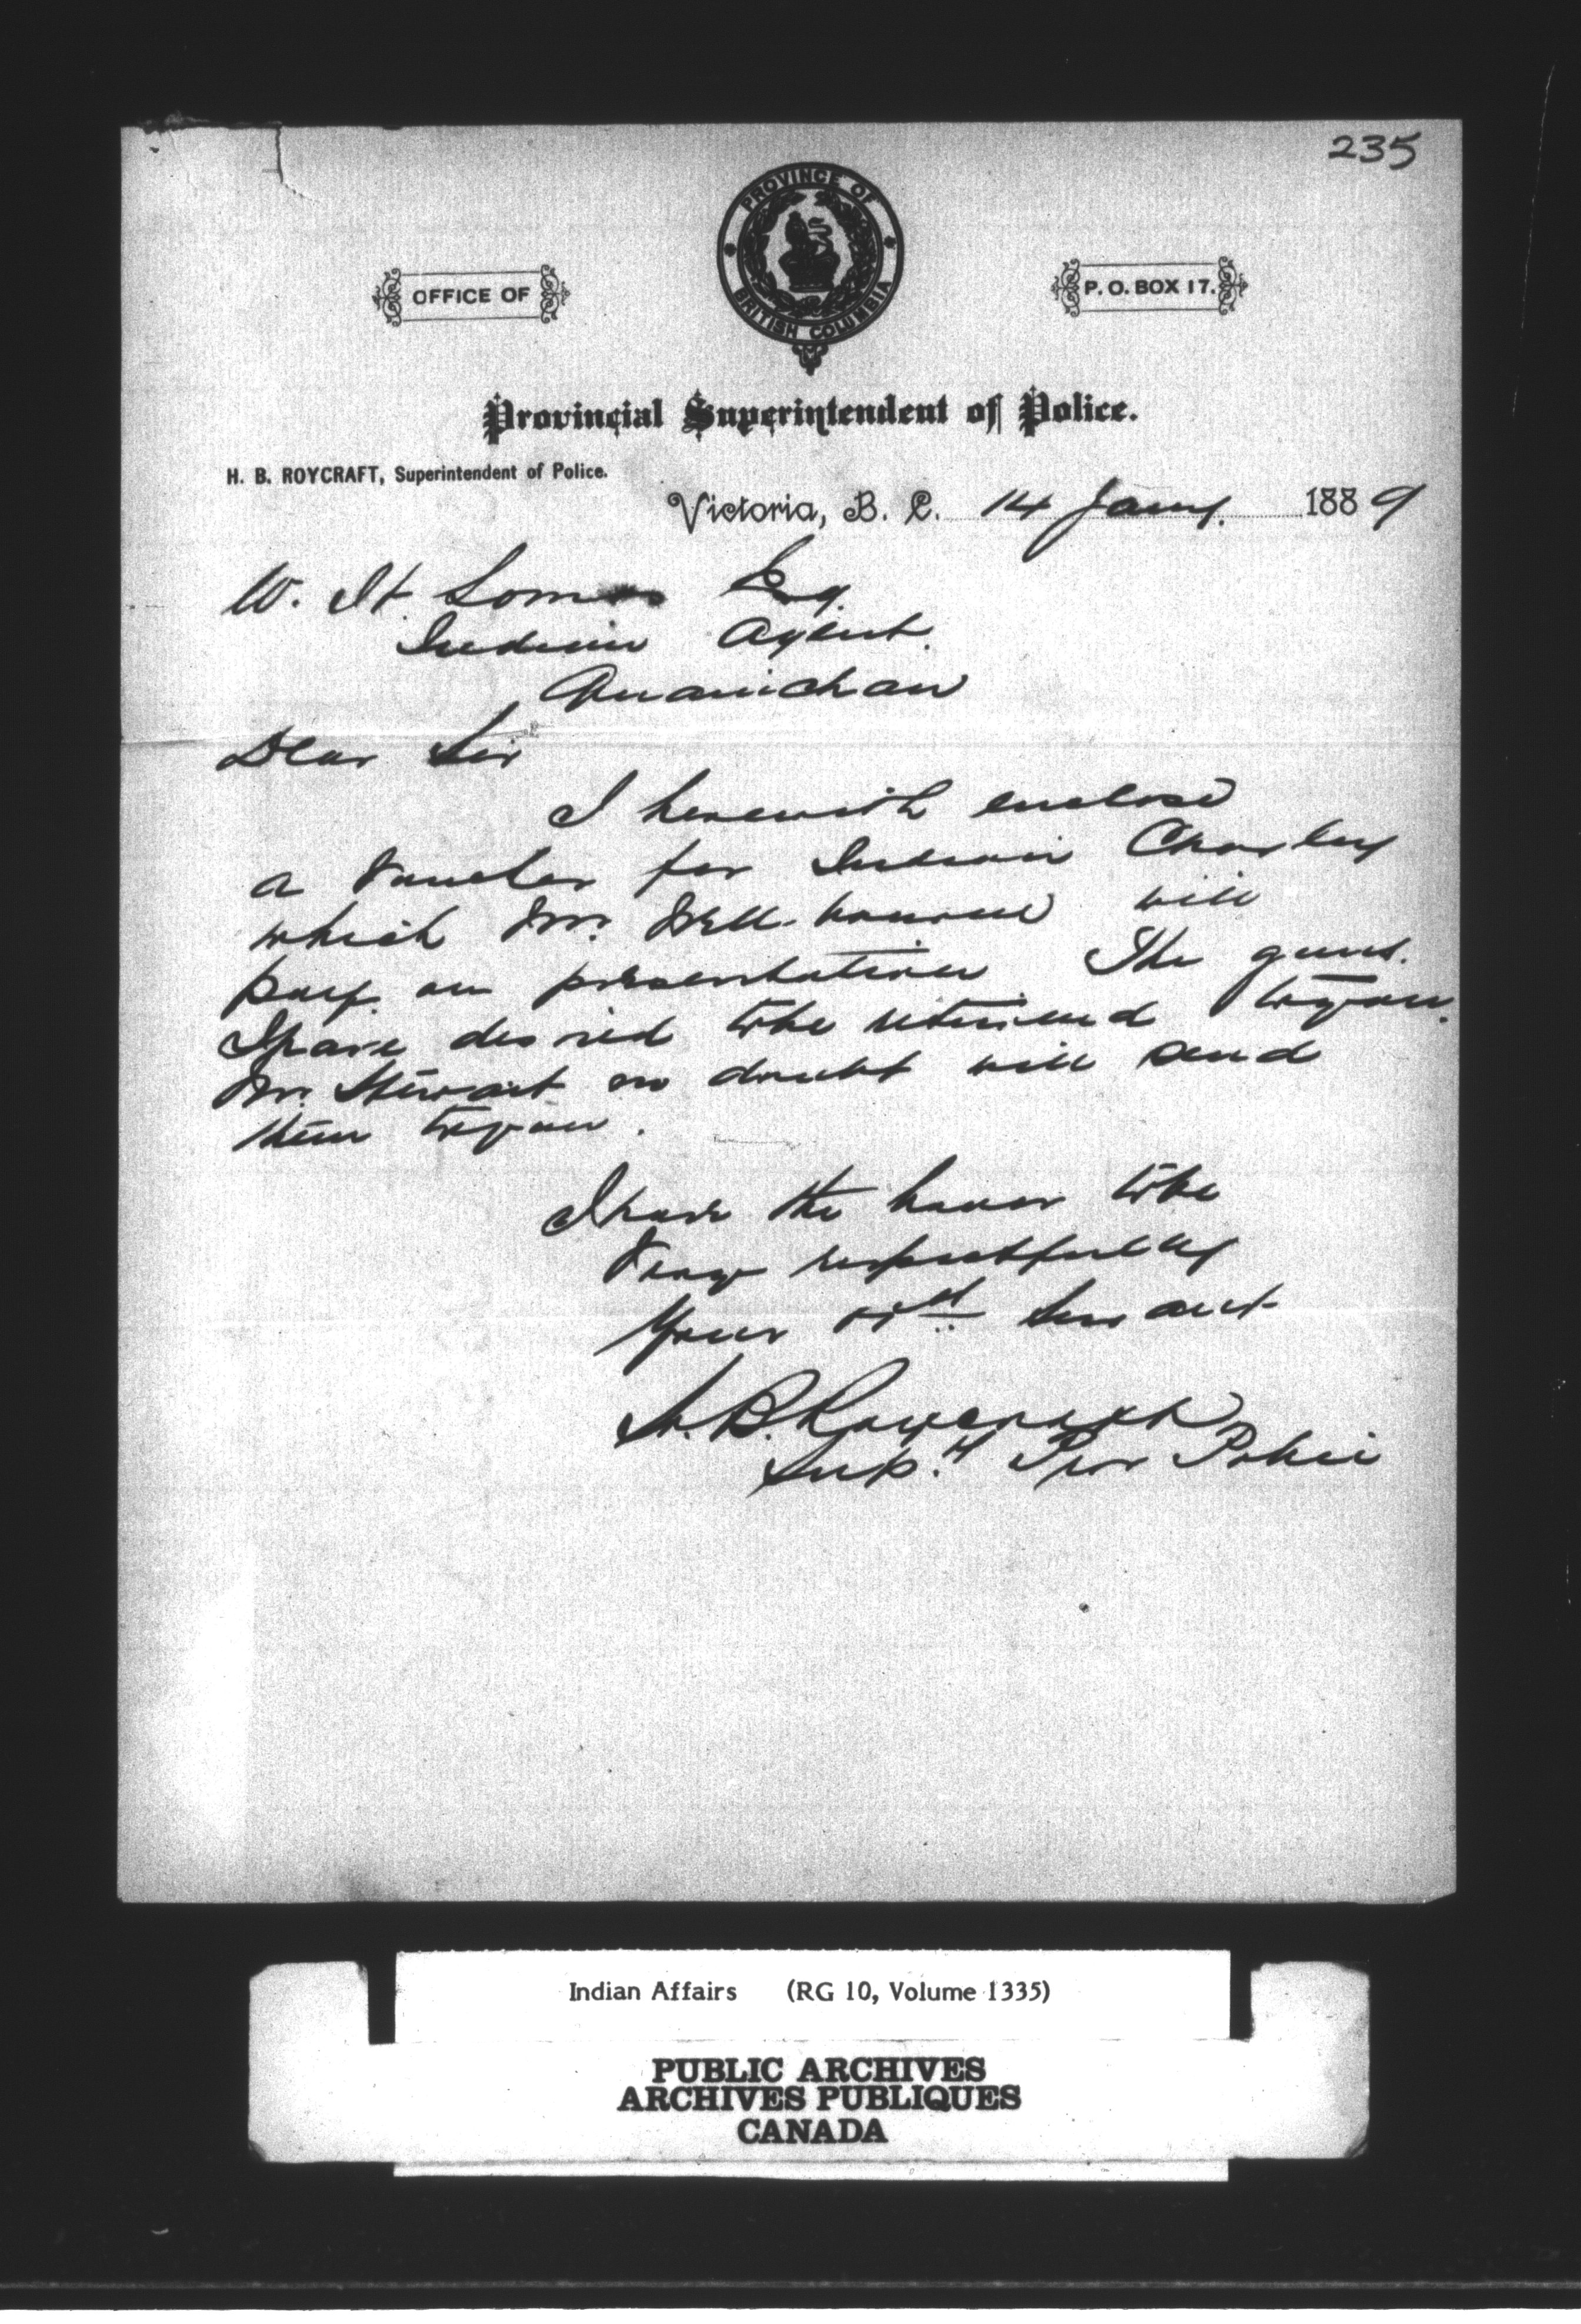 235
PROVINCE OF
BRITISH COLUMBIA
OFFICE OF
P. O. BOX 17.
Provincial Superintendent of Police.
H. B. ROYCRAFT, Superintendent of Police.
Victoria, B. C. 14 Jany. 1889
W. H Lomas Esq.
Indian Agent.
Quamichan
Dear Sir
I herewith enclose
a voucher for Indian Charley
which Mr. will
pay on presentation The guns.
I have desired to be returned
Mr. Stewart no doubt will send
them
I have the honor to be
Very respectfully
Your obd Servant
H. B. Roycraft
Supt Prov Police
Indian Affairs (RG 10, Volume 1335)
PUBLIC ARCHIVES
ARCHIVES PUBLIQUES
CANADA